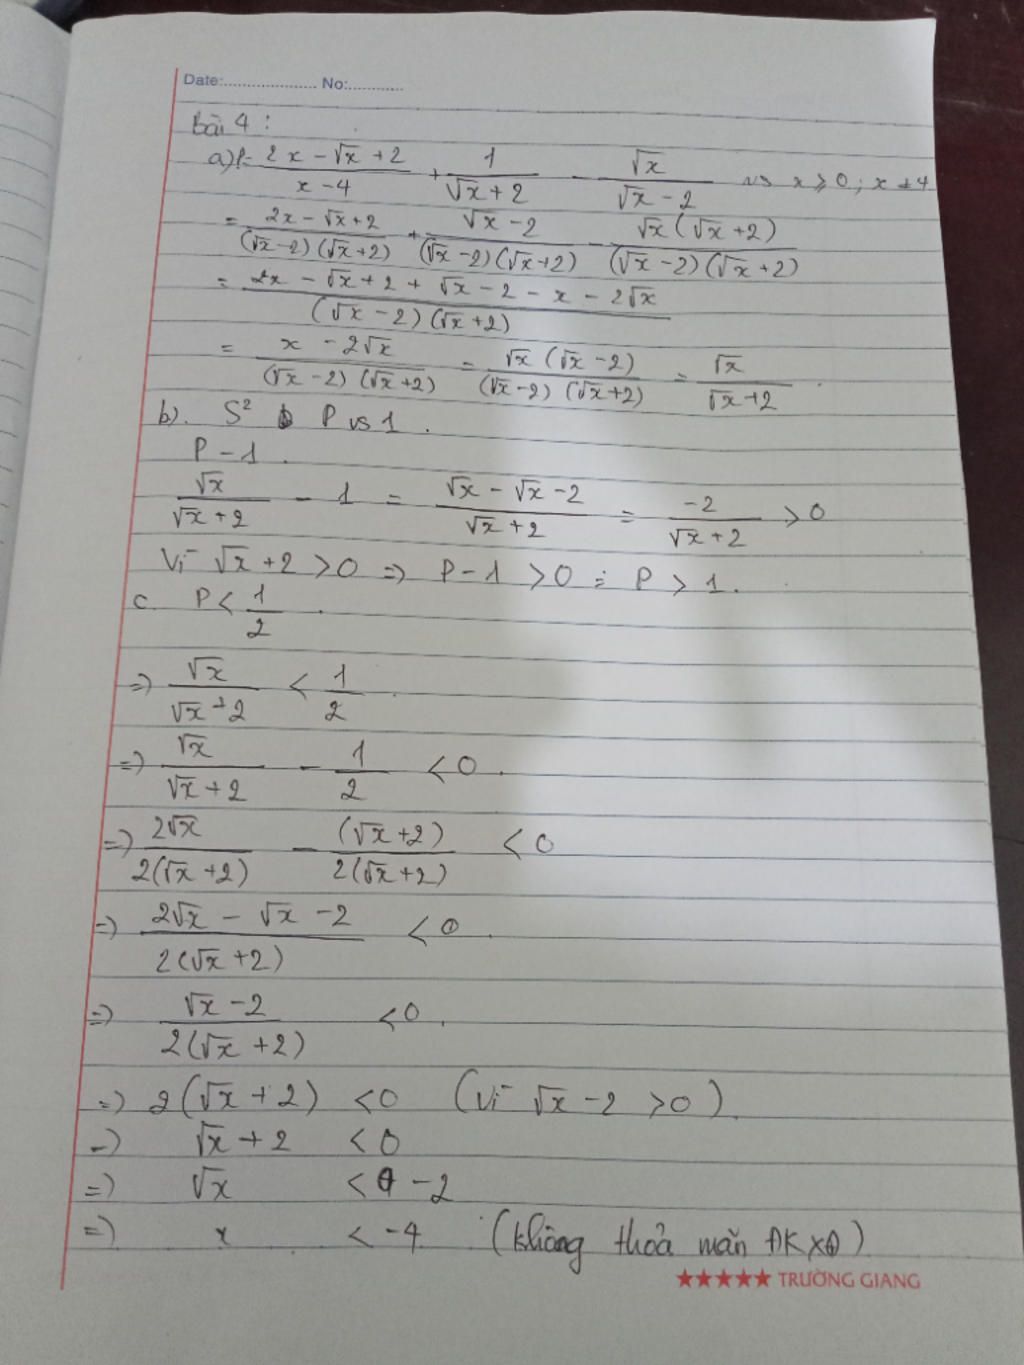 Date:.................... No:............
Bài 4 :
a) P = (2x - √x + 2)/(x - 4) + 1/(√x + 2) - √x/(√x - 2) vs x ≥ 0 ; x ≠ 4
= (2x - √x + 2)/((√x - 2)(√x + 2)) + (√x - 2)/((√x - 2)(√x + 2)) - √x(√x + 2)/((√x - 2)(√x + 2))
= (2x - √x + 2 + √x - 2 - x - 2√x)/((√x - 2)(√x + 2))
= (x - 2√x)/((√x - 2)(√x + 2)) = √x(√x - 2)/((√x - 2)(√x + 2)) = √x/(√x + 2) .
b). S² P vs 1 .
P - 1 .
√x/(√x + 2) - 1 = (√x - √x - 2)/(√x + 2) = -2/(√x + 2) > 0
Vì √x + 2 > 0 => P - 1 > 0 = P > 1 .
c. P < 1/2 .
=> √x/(√x + 2) < 1/2 .
=> √x/(√x + 2) - 1/2 < 0 .
=> 2√x/(2(√x + 2)) - (√x + 2)/(2(√x + 2)) < 0
=> (2√x - √x - 2)/(2(√x + 2)) < 0 .
=> (√x - 2)/(2(√x + 2)) < 0 .
=> 2(√x + 2) < 0 (Vì √x - 2 > 0).
=> √x + 2 < 0
=> √x < - 2
=> x < -4 (không thoả mãn ĐKXĐ)
★★★★★ TRƯỜNG GIANG